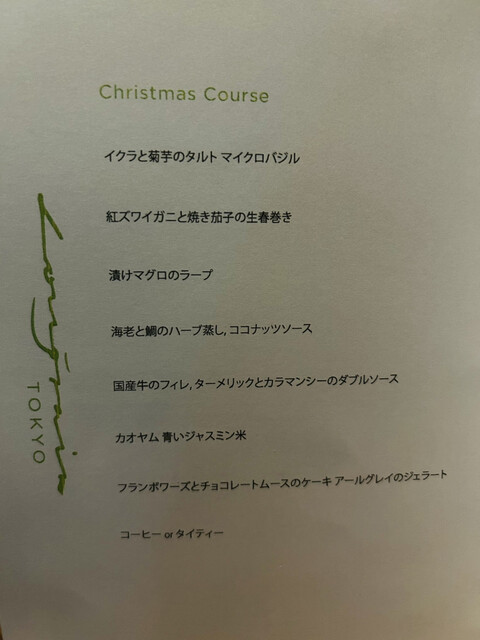 Christmas Course
イクラと菊芋のタルト マイクロバジル
紅ズワイガニと焼き茄子の生春巻き
漬けマグロのラープ
海老と鯛のハーブ蒸し, ココナッツソース
国産牛のフィレ, ターメリックとカラマンシーのダブルソース
カオヤム 青いジャスミン米
フランボワーズとチョコレートムースのケーキ アールグレイのジェラート
コーヒー or タイティー
Longrain
TOKYO